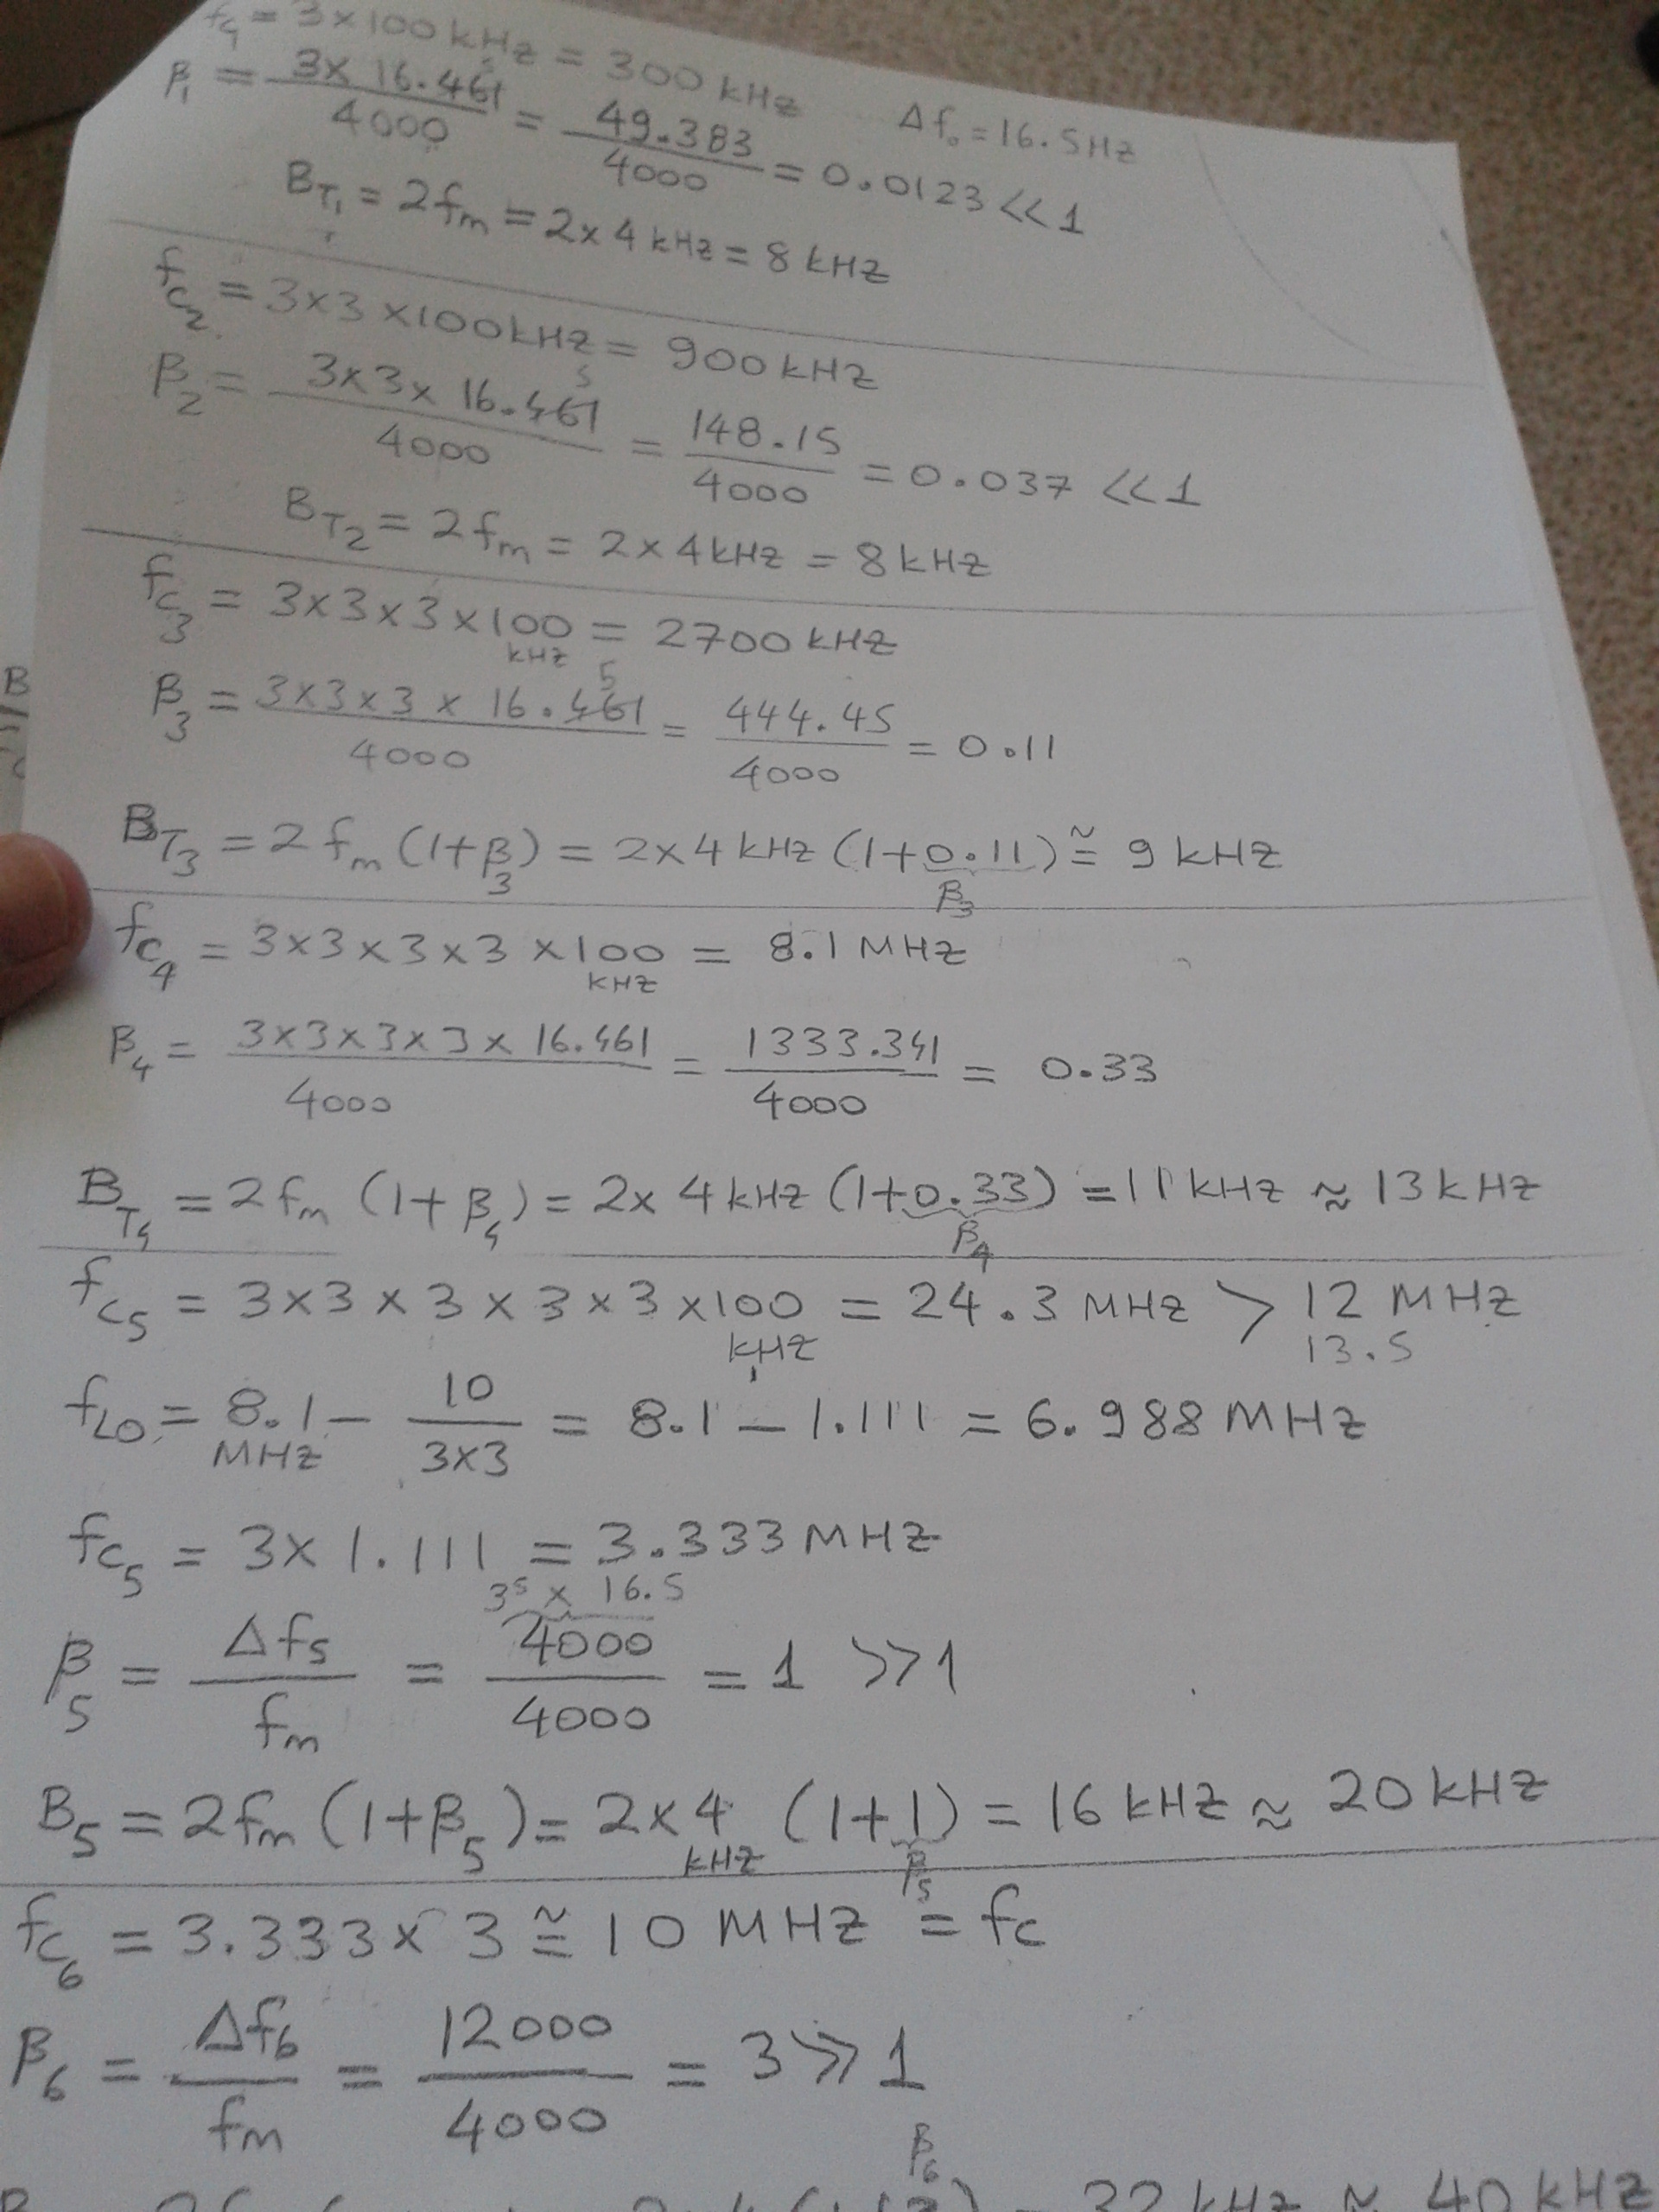 fc1 = 3×100 kHz = 300 kHz
Δf₀ = 16.5 Hz
β1 = 3× 16.461 5 / 4000 = 49.383 / 4000 = 0.0123 << 1
BT1 = 2fm = 2× 4 kHz = 8 kHz
fc2 = 3×3 ×100 kHz = 900 kHz
β2 = 3×3× 16.461 5 / 4000 = 148.15 / 4000 = 0.037 << 1
BT2 = 2fm = 2 × 4 kHz = 8 kHz
fc3 = 3×3×3 ×100 kHz = 2700 kHz
β3 = 3×3×3 × 16.461 5 / 4000 = 444.45 / 4000 = 0.11
BT3 = 2 fm (1+β3) = 2×4 kHz (1+0.11) ≅ 9 kHz
β3
fc4 = 3×3×3×3 ×100 kHz = 8.1 MHz
β4 = 3×3×3×3× 16.461 / 4000 = 1333.341 / 4000 = 0.33
BT4 = 2fm (1+ β4) = 2× 4 kHz (1+0.33) = 11 kHz ≈ 13 kHz
β4
fc5 = 3×3 × 3 × 3 × 3 ×100 kHz = 24.3 MHz > 12 MHz
13.5
fLO = 8.1 MHz − 10 / 3×3 = 8.1 − 1.111 = 6.988 MHz
fc5 = 3× 1.111 = 3.333 MHz
3⁵ × 16.5
β5 = Δf5 / fm = 4000 / 4000 = 1 >> 1
B5 = 2fm (1+β5) = 2×4 kHz (1+1) = 16 kHz ≈ 20 kHz
β5
fc6 = 3.333× 3 ≅ 10 MHz = fc
β6 = Δf6 / fm = 12000 / 4000 = 3 >> 1
β6
32 kHz ≈ 40 kHz